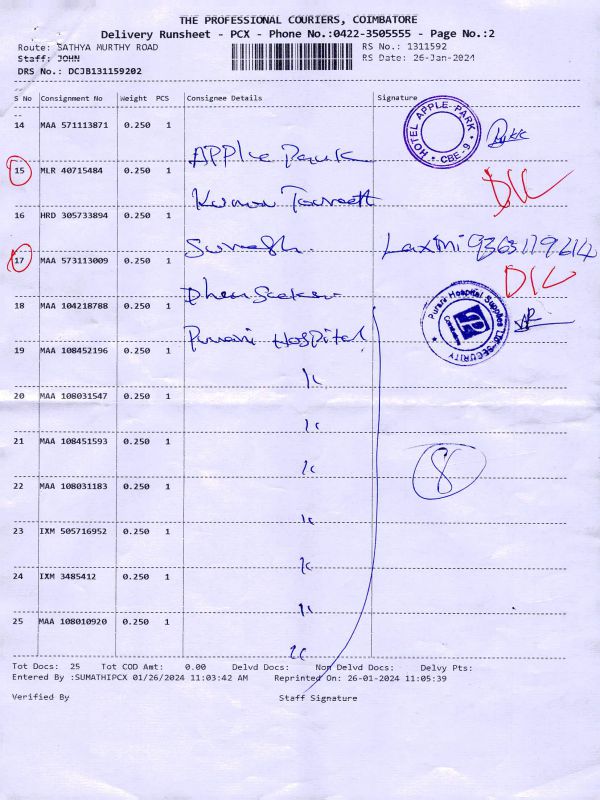 THE PROFESSIONAL COURIERS, COIMBATORE
Delivery Runsheet - PCX - Phone No.:0422-3505555 - Page No.:2
Route: SATHYA MURTHY ROAD RS No.: 1311592
Staff: JOHN RS Date: 26-Jan-2024
DRS No.: DCJB131159202
S No Consignment No Weight PCS Consignee Details Signature
14 MAA 571113871 0.250 1 HOTEL APPLE PARK CBE-9
Apple Park
15 MLR 40715484 0.250 1 D/C
Kumar
16 HRD 305733894 0.250 1
Suresh Laxmi 9363179614
17 MAA 573113009 0.250 1 D/C
18 MAA 104218788 0.250 1 Purani Hospital Supplies Ltd SECURITY Coimbatore
Purani Hospital
19 MAA 108452196 0.250 1
20 MAA 108031547 0.250 1
21 MAA 108451593 0.250 1
8
22 MAA 108031183 0.250 1
23 IXM 505716952 0.250 1
24 IXM 3485412 0.250 1
25 MAA 108010920 0.250 1
Tot Docs: 25 Tot COD Amt: 0.00 Delvd Docs: Non Delvd Docs: Delvy Pts:
Entered By :SUMATHIPCX 01/26/2024 11:03:42 AM Reprinted On: 26-01-2024 11:05:39
Verified By Staff Signature